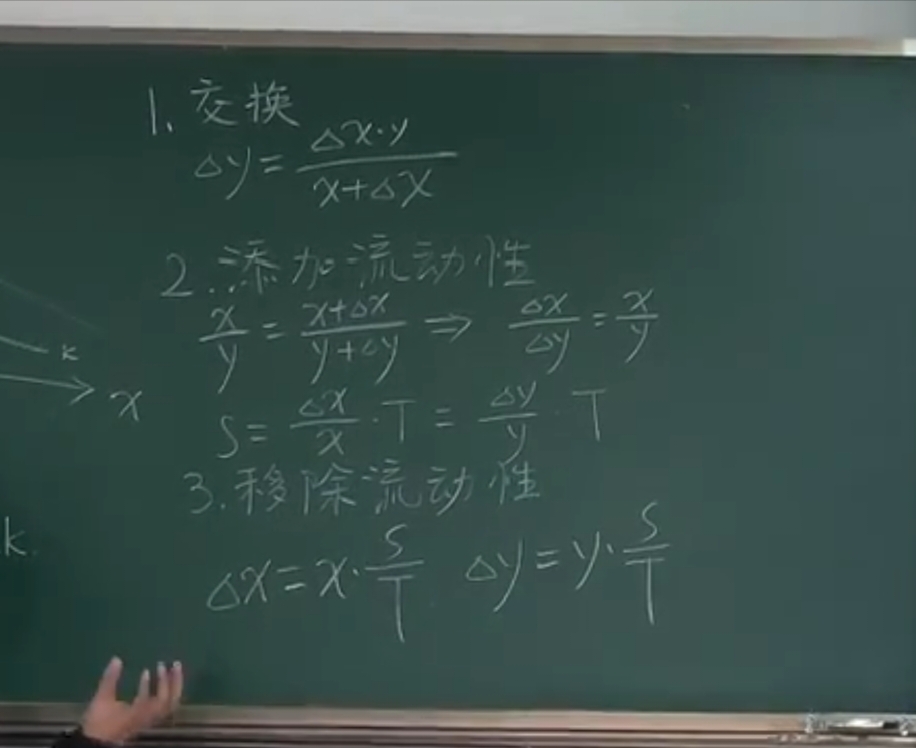 1. 交换
Δy = Δx·y / x+Δx
2. 添加流动性
x/y = x+Δx / y+Δy ⇒ Δx/Δy = x/y
k
x
S = Δx/x · T = Δy/y · T
3. 移除流动性
k.
Δx = x · S/T Δy = y · S/T